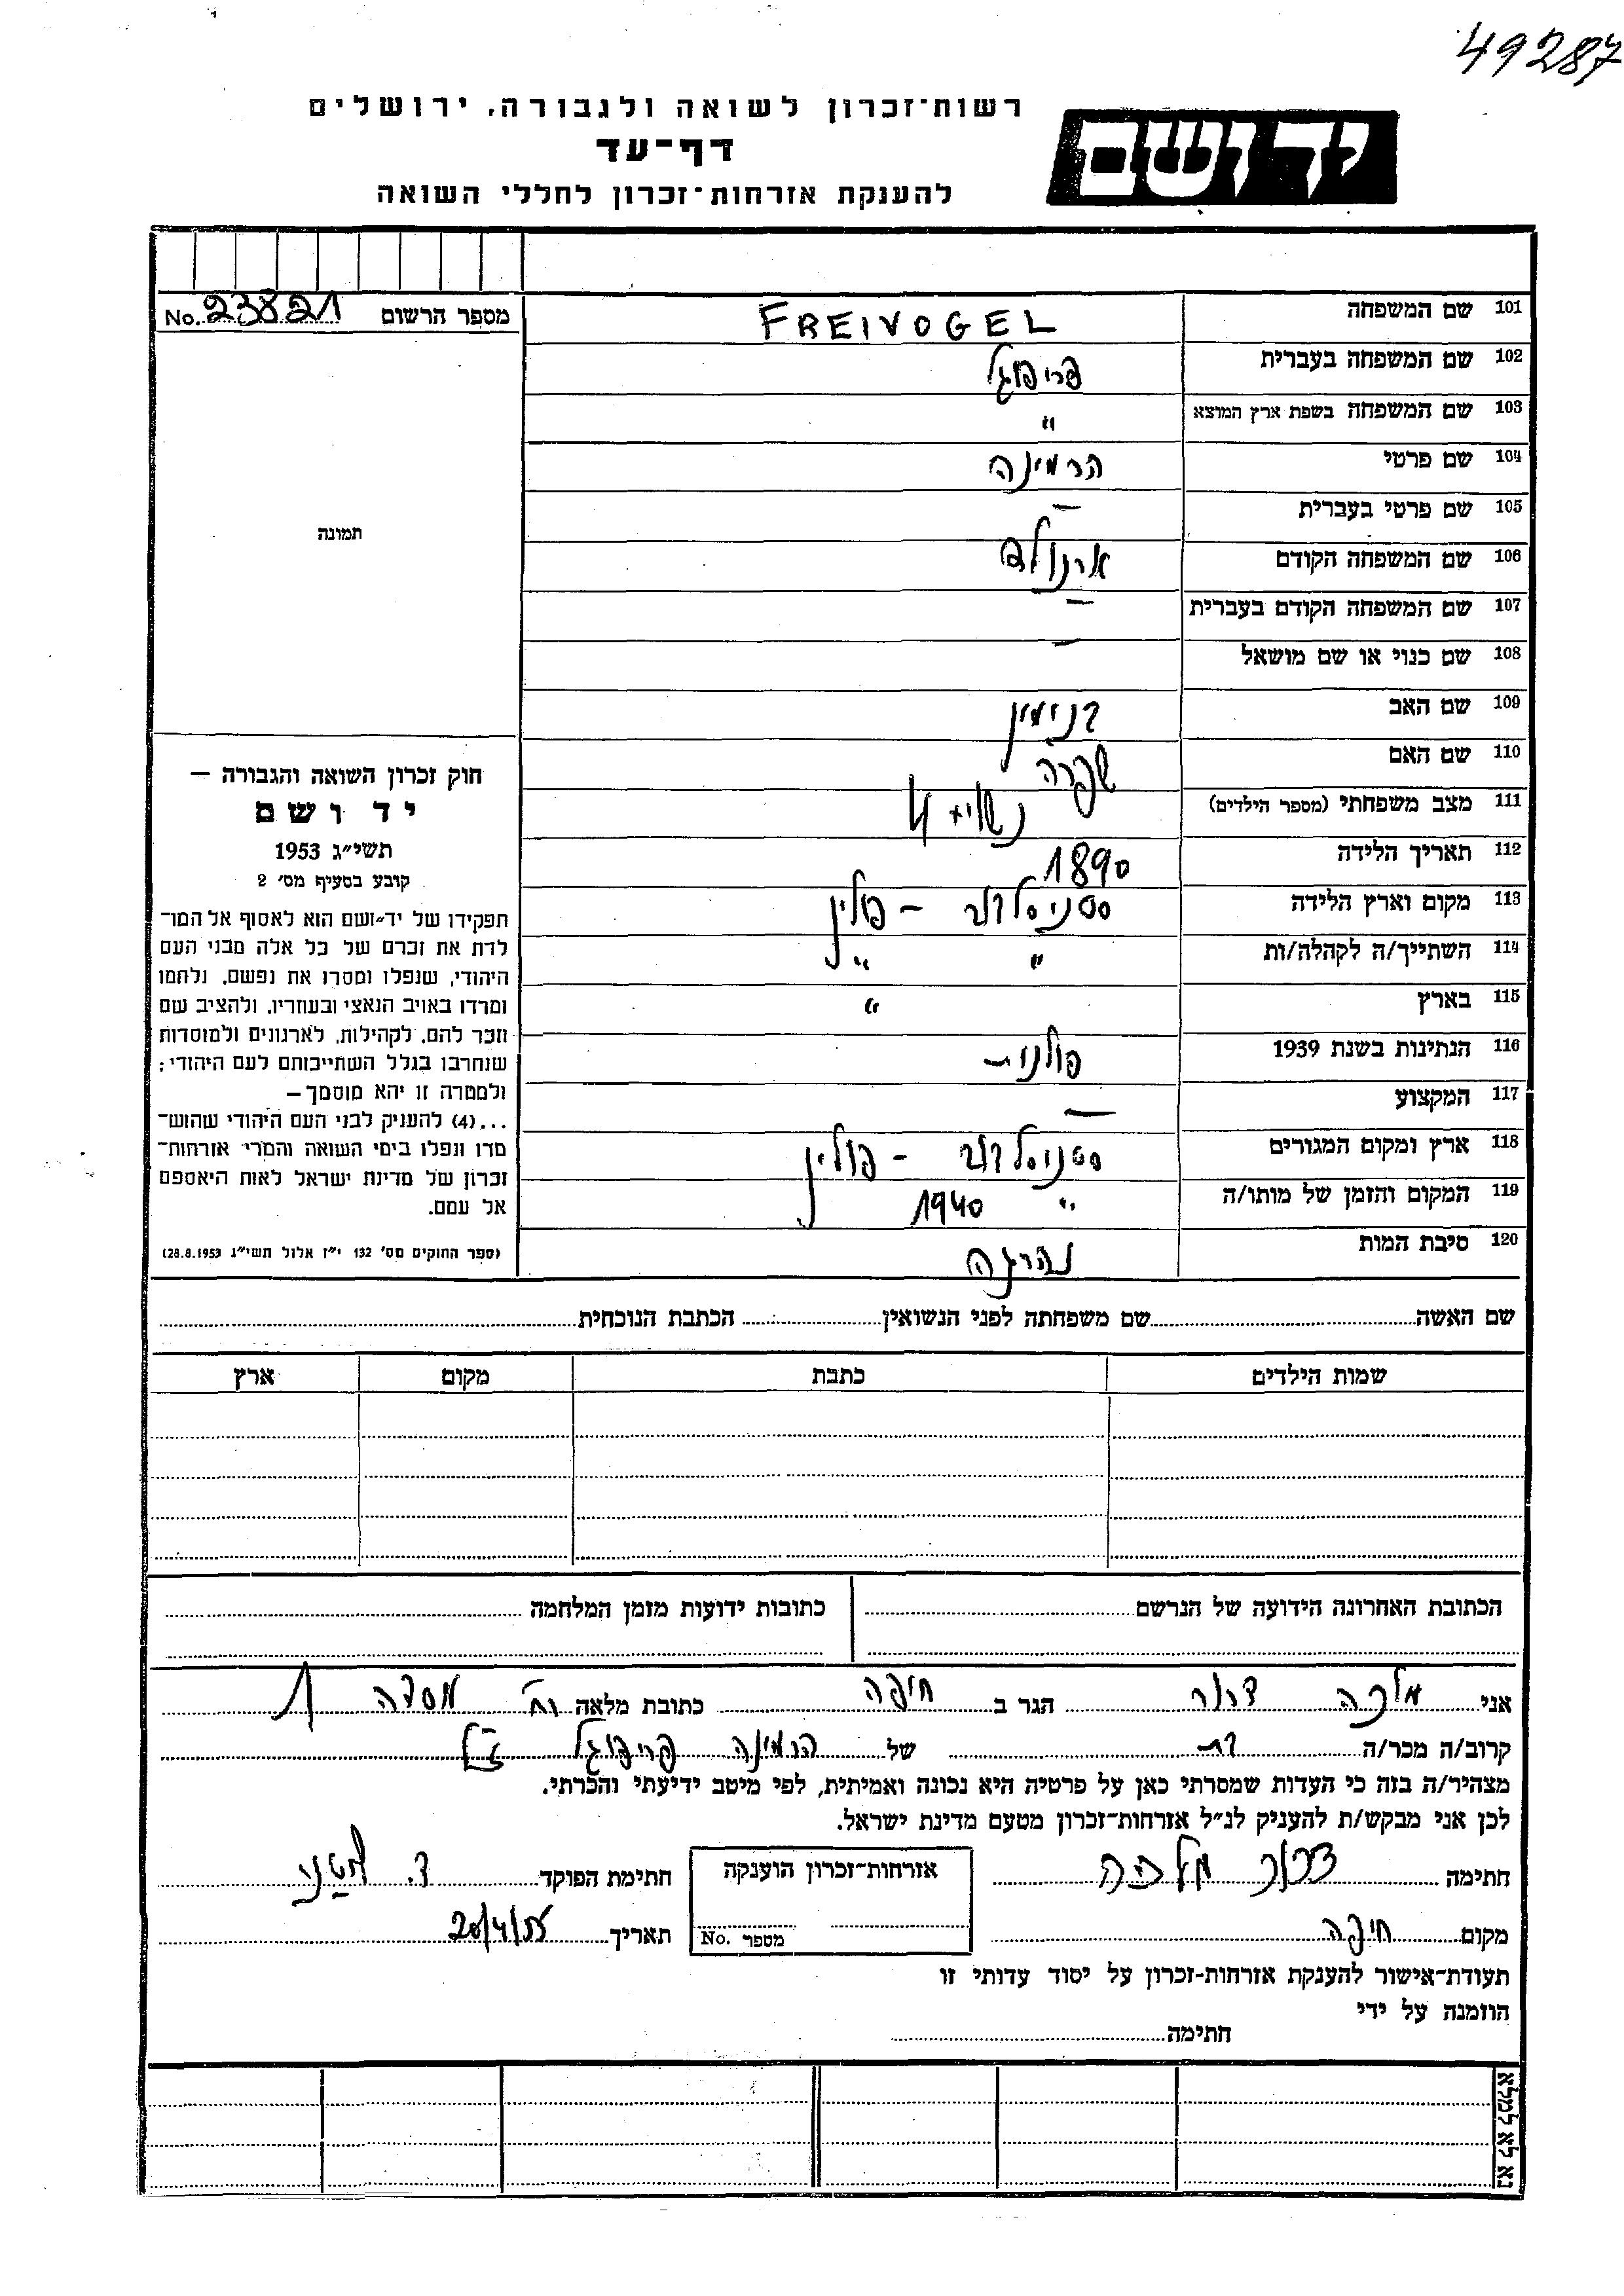 49287
יד ושם
רשות־זכרון לשואה ולגבורה, ירושלים
דף־עד
להענקת אזרחות־זכרון לחללי השואה
מספר הרשום No. 23821
תמונה
101 שם המשפחה FREIVOGEL
102 שם המשפחה בעברית פריפוגל
103 שם המשפחה בשפת ארץ המוצא "
104 שם פרטי הרמינה
105 שם פרטי בעברית —
106 שם המשפחה הקודם ארנולד
107 שם המשפחה הקודם בעברית —
108 שם כנוי או שם מושאל —
109 שם האב בנימין
110 שם האם שפרה
111 מצב משפחתי (מספר הילדים) נשואה 4
112 תאריך הלידה 1890
113 מקום וארץ הלידה סטניסלבוב – פולין
114 השתייך/ה לקהלה/ות " "
115 בארץ "
116 הנתינות בשנת 1939 פולנית
117 המקצוע —
118 ארץ ומקום המגורים סטניסלבוב – פולין
119 המקום והזמן של מותו/ה " 1940
120 סיבת המות נהרגה
חוק זכרון השואה והגבורה –
יד ושם
תשי״ג 1953
קובע בסעיף מס׳ 2
תפקידו של יד־ושם הוא לאסוף אל המו־
לדת את זכרם של כל אלה מבני העם
היהודי, שנפלו ומסרו את נפשם, נלחמו
ומרדו באויב הנאצי ובעוזריו, ולהציב שם
וזכר להם, לקהילות, לארגונים ולמוסדות
שנחרבו בגלל השתייכותם לעם היהודי;
ולמטרה זו יהא מוסמך –
...(4) להעניק לבני העם היהודי שהוש־
מדו ונפלו בימי השואה והמרי אזרחות־
זכרון של מדינת ישראל לאות היאספם
אל עמם.
(ספר החוקים מס׳ 132 י״ז אלול תשי״ג 28.8.1953)
שם האשה שם משפחתה לפני הנשואין הכתבת הנוכחית
שמות הילדים כתבת מקום ארץ
הכתובת האחרונה הידועה של הנרשם כתובות ידועות מזמן המלחמה
אני מלכה דרור הגר ב חיפה כתובת מלאה רח׳ מסדה 1
קרוב/ה מכר/ה בת של הרמינה פריפוגל ז״ל
מצהיר/ה בזה כי העדות שמסרתי כאן על פרטיה היא נכונה ואמיתית, לפי מיטב ידיעתי והכרתי.
לכן אני מבקש/ת להעניק לנ״ל אזרחות־זכרון מטעם מדינת ישראל.
חתימה דרור מלכה אזרחות־זכרון הוענקה חתימת הפוקד
מקום חיפה מספר No. תאריך 20/4/55
תעודת־אישור להענקת אזרחות־זכרון על יסוד עדותי זו
הוזמנה על ידי
חתימה
נא לא למלא